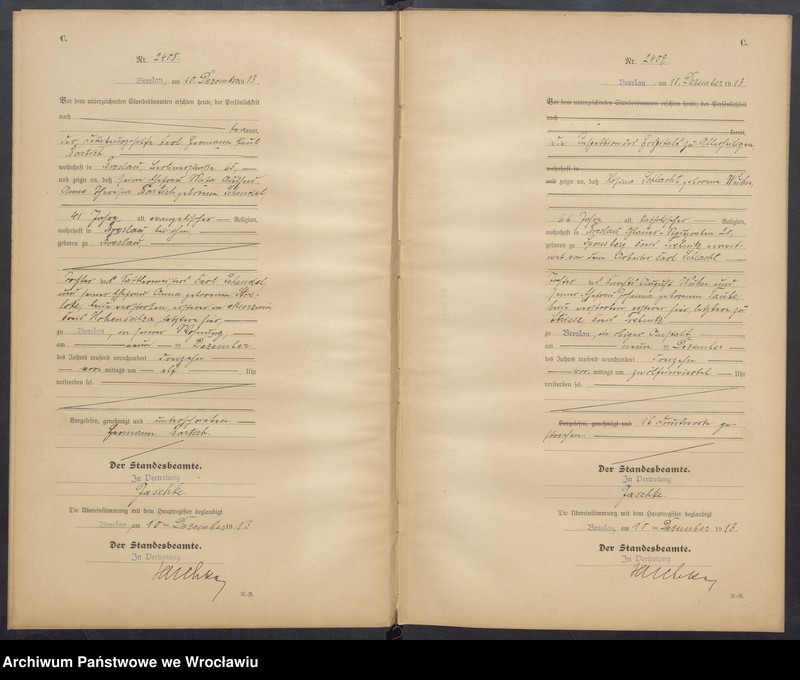 C.
Nr. 2408.
Breslau, am 10. Dezember 1913
Vor dem unterzeichneten Standesbeamten erschien heute, der Persönlichkeit
nach
bekannt,
der Carl Hermann Paul
Bartsch
wohnhaft in Breslau, Berlinerstraße 65,
und zeigte an, daß seine Ehefrau
Anna Theresia Bartsch geborene Schendel
41 Jahre alt, evangelischer Religion,
wohnhaft in Breslau bei ihm,
geboren zu Breslau
Tochter des Carl Schendel
und seiner Ehefrau Anna geborenen
beide verstorben,
Hohensalza, letztere hier,
zu Breslau, in seiner Wohnung,
am neun ten Dezember
des Jahres tausend neunhundert dreizehn
vormittags um elf Uhr
verstorben sei.
Vorgelesen, genehmigt und unterschrieben.
Hermann Bartsch.
Der Standesbeamte.
In Vertretung
Jaschke.
Die Übereinstimmung mit dem Hauptregister beglaubigt
Breslau, am 10 ten Dezember 1913
Der Standesbeamte.
In Vertretung
N.-R.
C.
Nr. 2409.
Breslau, am 10. Dezember 1913.
Vor dem unterzeichneten Standesbeamten erschien heute, der Persönlichkeit
nach
bekannt,
die Inspektion des Hospitals zu Allerheiligen
wohnhaft in
und zeigte an, daß Rosina Schlacht, geborene
66 Jahre alt, katholischer Religion,
wohnhaft in Breslau, 20,
geboren zu Kreis Trebnitz, verwit-
wet von dem Arbeiter Carl Schlacht
Tochter des August und
seiner Ehefrau Johanna geborenen
beide verstorben, ersterer hier, letztere zu
Kreis Trebnitz
zu Breslau, in obiger Anstalt
am neun ten Dezember
des Jahres tausend neunhundert dreizehn
vormittags um Uhr
verstorben sei.
Vorgelesen, genehmigt und 16 Druckworte ge-
strichen.
Der Standesbeamte.
In Vertretung
Jaschke.
Die Übereinstimmung mit dem Hauptregister beglaubigt
Breslau, am 10 ten Dezember 1913.
Der Standesbeamte.
In Vertretung
N.-R.
Archiwum Państwowe we Wrocławiu